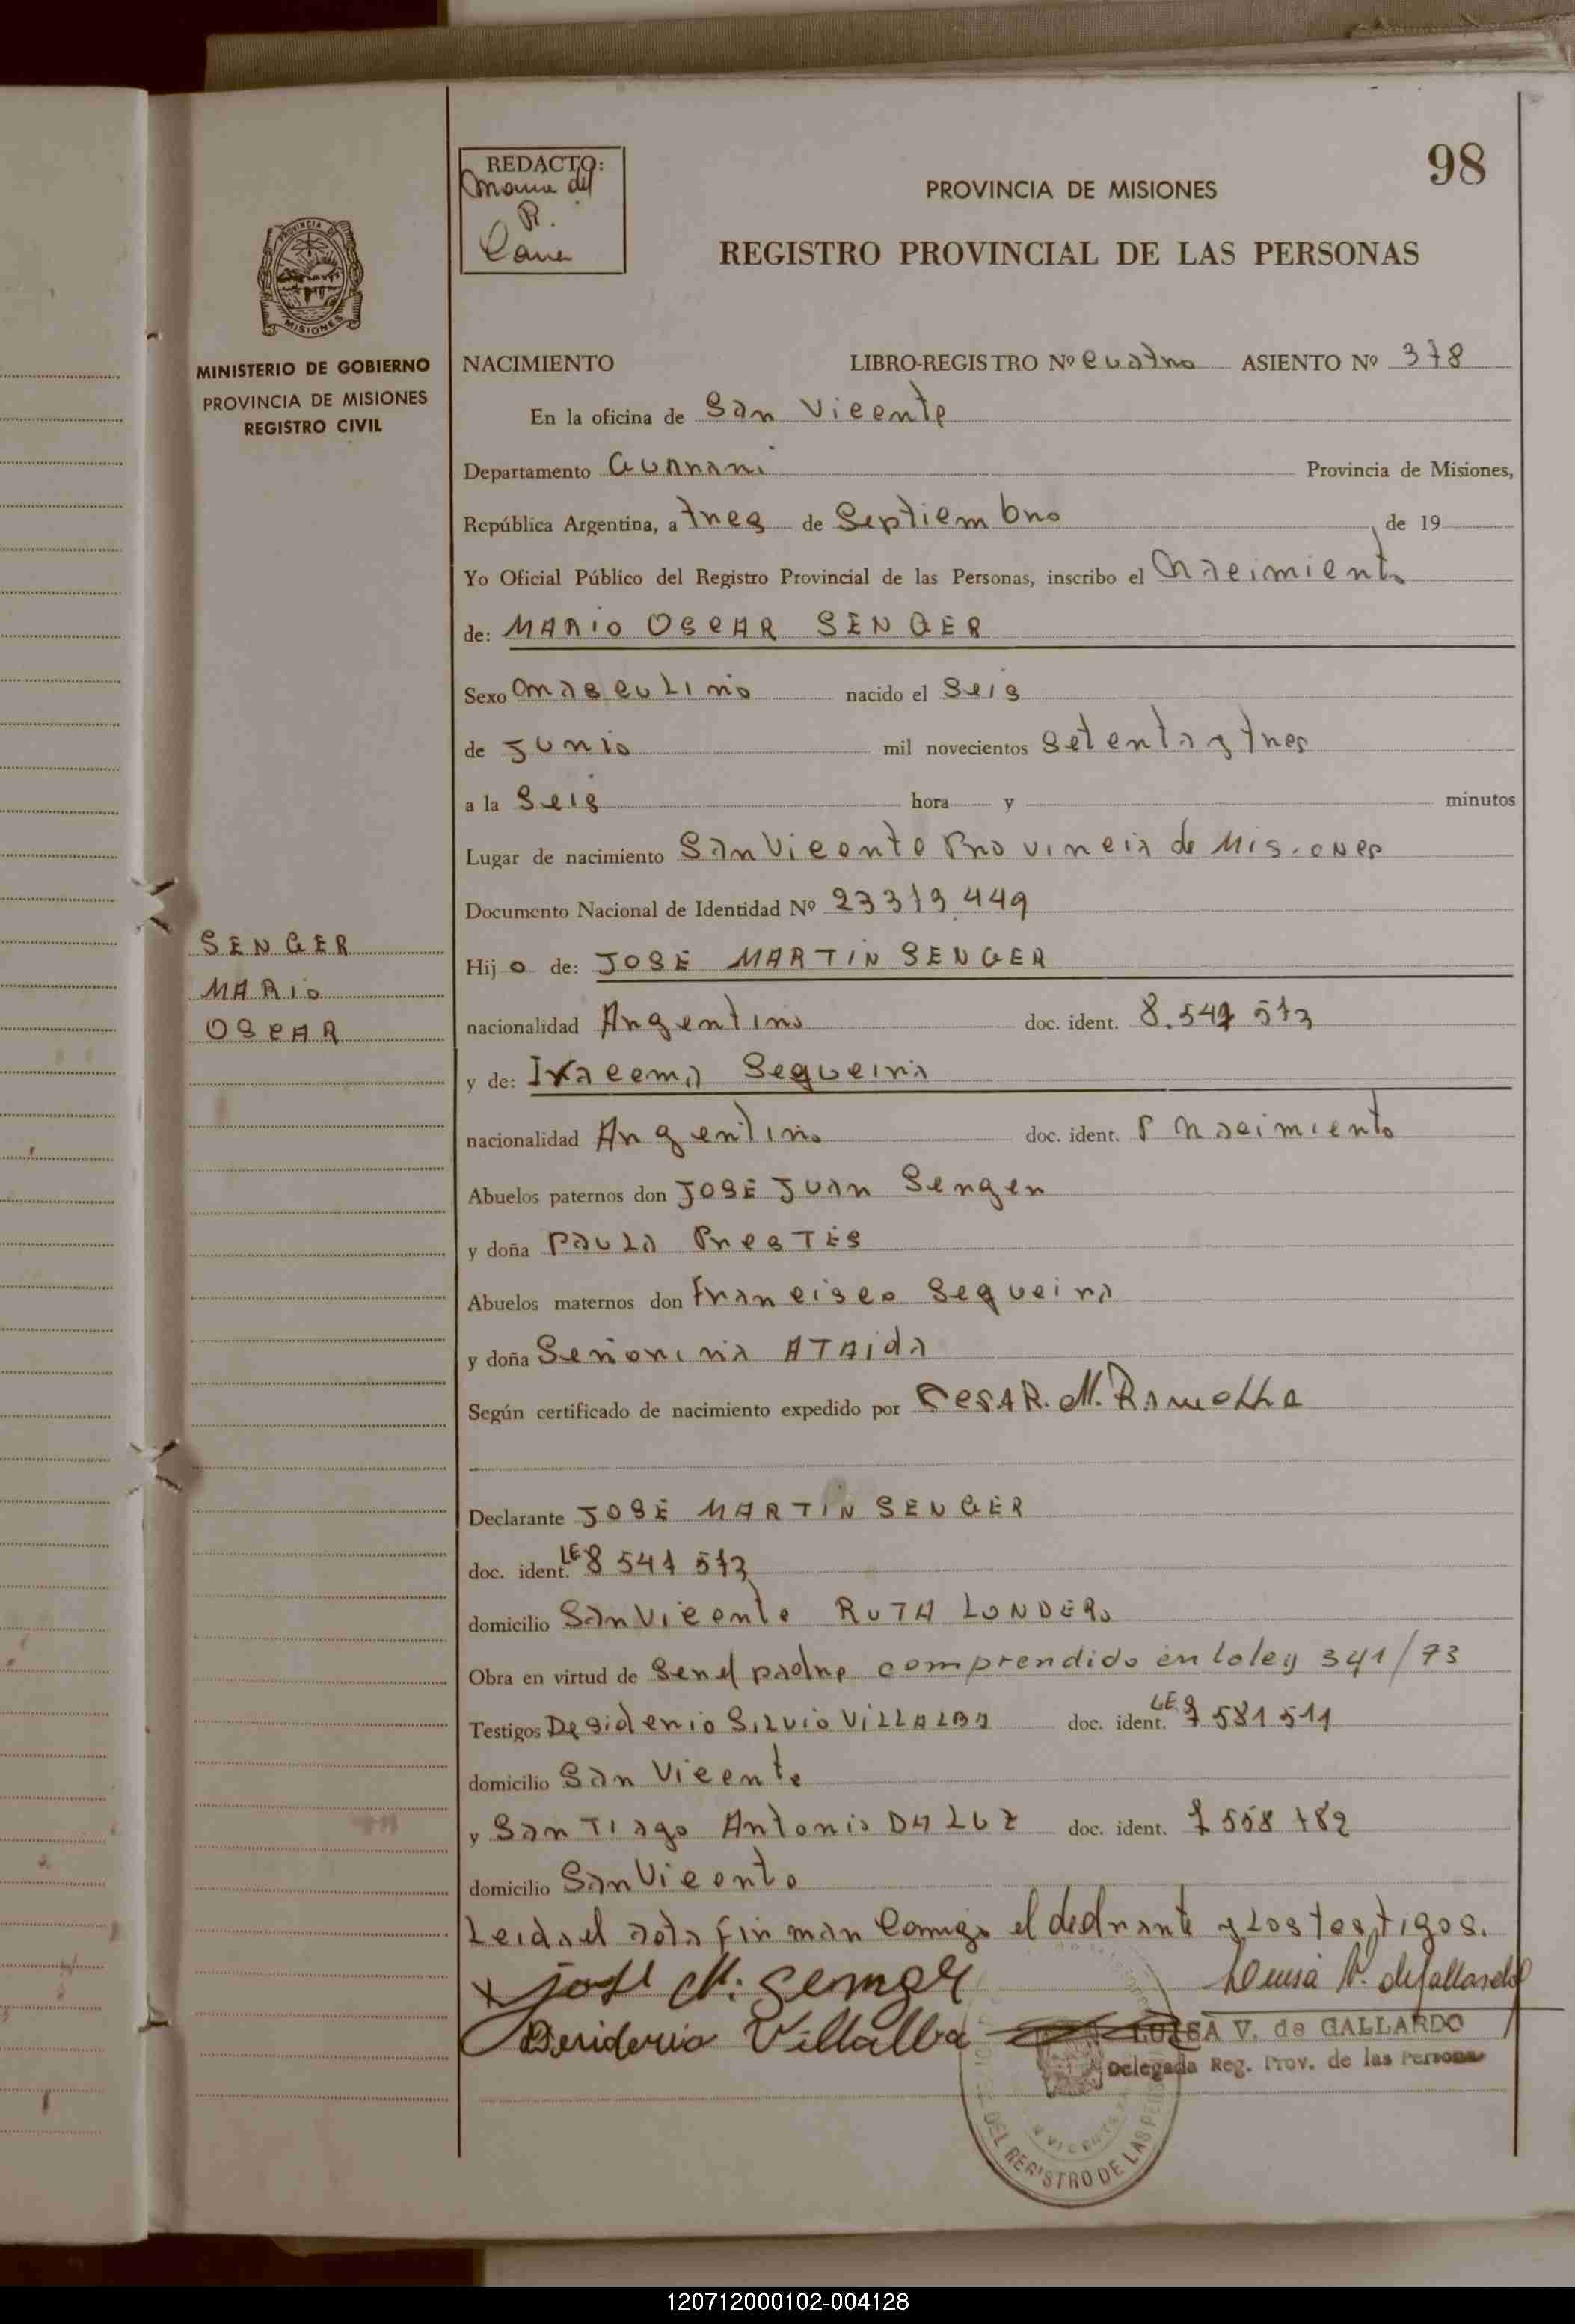 98
REDACTO:
Maria del
R.
PROVINCIA DE MISIONES
REGISTRO PROVINCIAL DE LAS PERSONAS
PROVINCIA DE
MISIONES
MINISTERIO DE GOBIERNO
PROVINCIA DE MISIONES
REGISTRO CIVIL
NACIMIENTO LIBRO-REGISTRO Nº cuatro ASIENTO Nº 378
En la oficina de San Vicente
Departamento Guarani Provincia de Misiones,
República Argentina, a tres de Septiembre de 19
Yo Oficial Público del Registro Provincial de las Personas, inscribo el Nacimiento
de: MARIO OSCAR SENGER
Sexo masculino nacido el Seis
de Junio mil novecientos Setenta y tres
a la Seis hora y minutos
Lugar de nacimiento San Vicente Provincia de Misiones
Documento Nacional de Identidad Nº 23379.449
SENGER
MARIO
OSCAR
Hijo de: JOSE MARTIN SENGER
nacionalidad Argentino doc. ident. 8.541 573
y de: Iracema Sequeira
nacionalidad Argentino doc. ident. P Nacimiento
Abuelos paternos don JOSE JUAN Senger
y doña PAULA PRESTES
Abuelos maternos don Francisco Sequeira
y doña Señorina ATAIDA
Según certificado de nacimiento expedido por CESAR. M.
Declarante JOSE MARTIN SENGER
doc. ident. LE 8 541 573
domicilio San Vicente RUTA LONDERO
Obra en virtud de Ser el padre comprendido en la ley 341/73
Testigos Desiderio SILVIO VILLALBA doc. ident. LE. 7 581 511
domicilio San Vicente
y SANTIAGO Antonio DA LUZ doc. ident. 7 558 782
domicilio San Vicente
Leida el acta firman Conmigo el declarante y Los testigos.
x José M. Senger Luisa V. de Gallardo
Desiderio Villalba
LUISA V. de GALLARDO
Delegada Reg. Prov. de las Personas
DEL REGISTRO DE LAS PERS
120712000102-004128